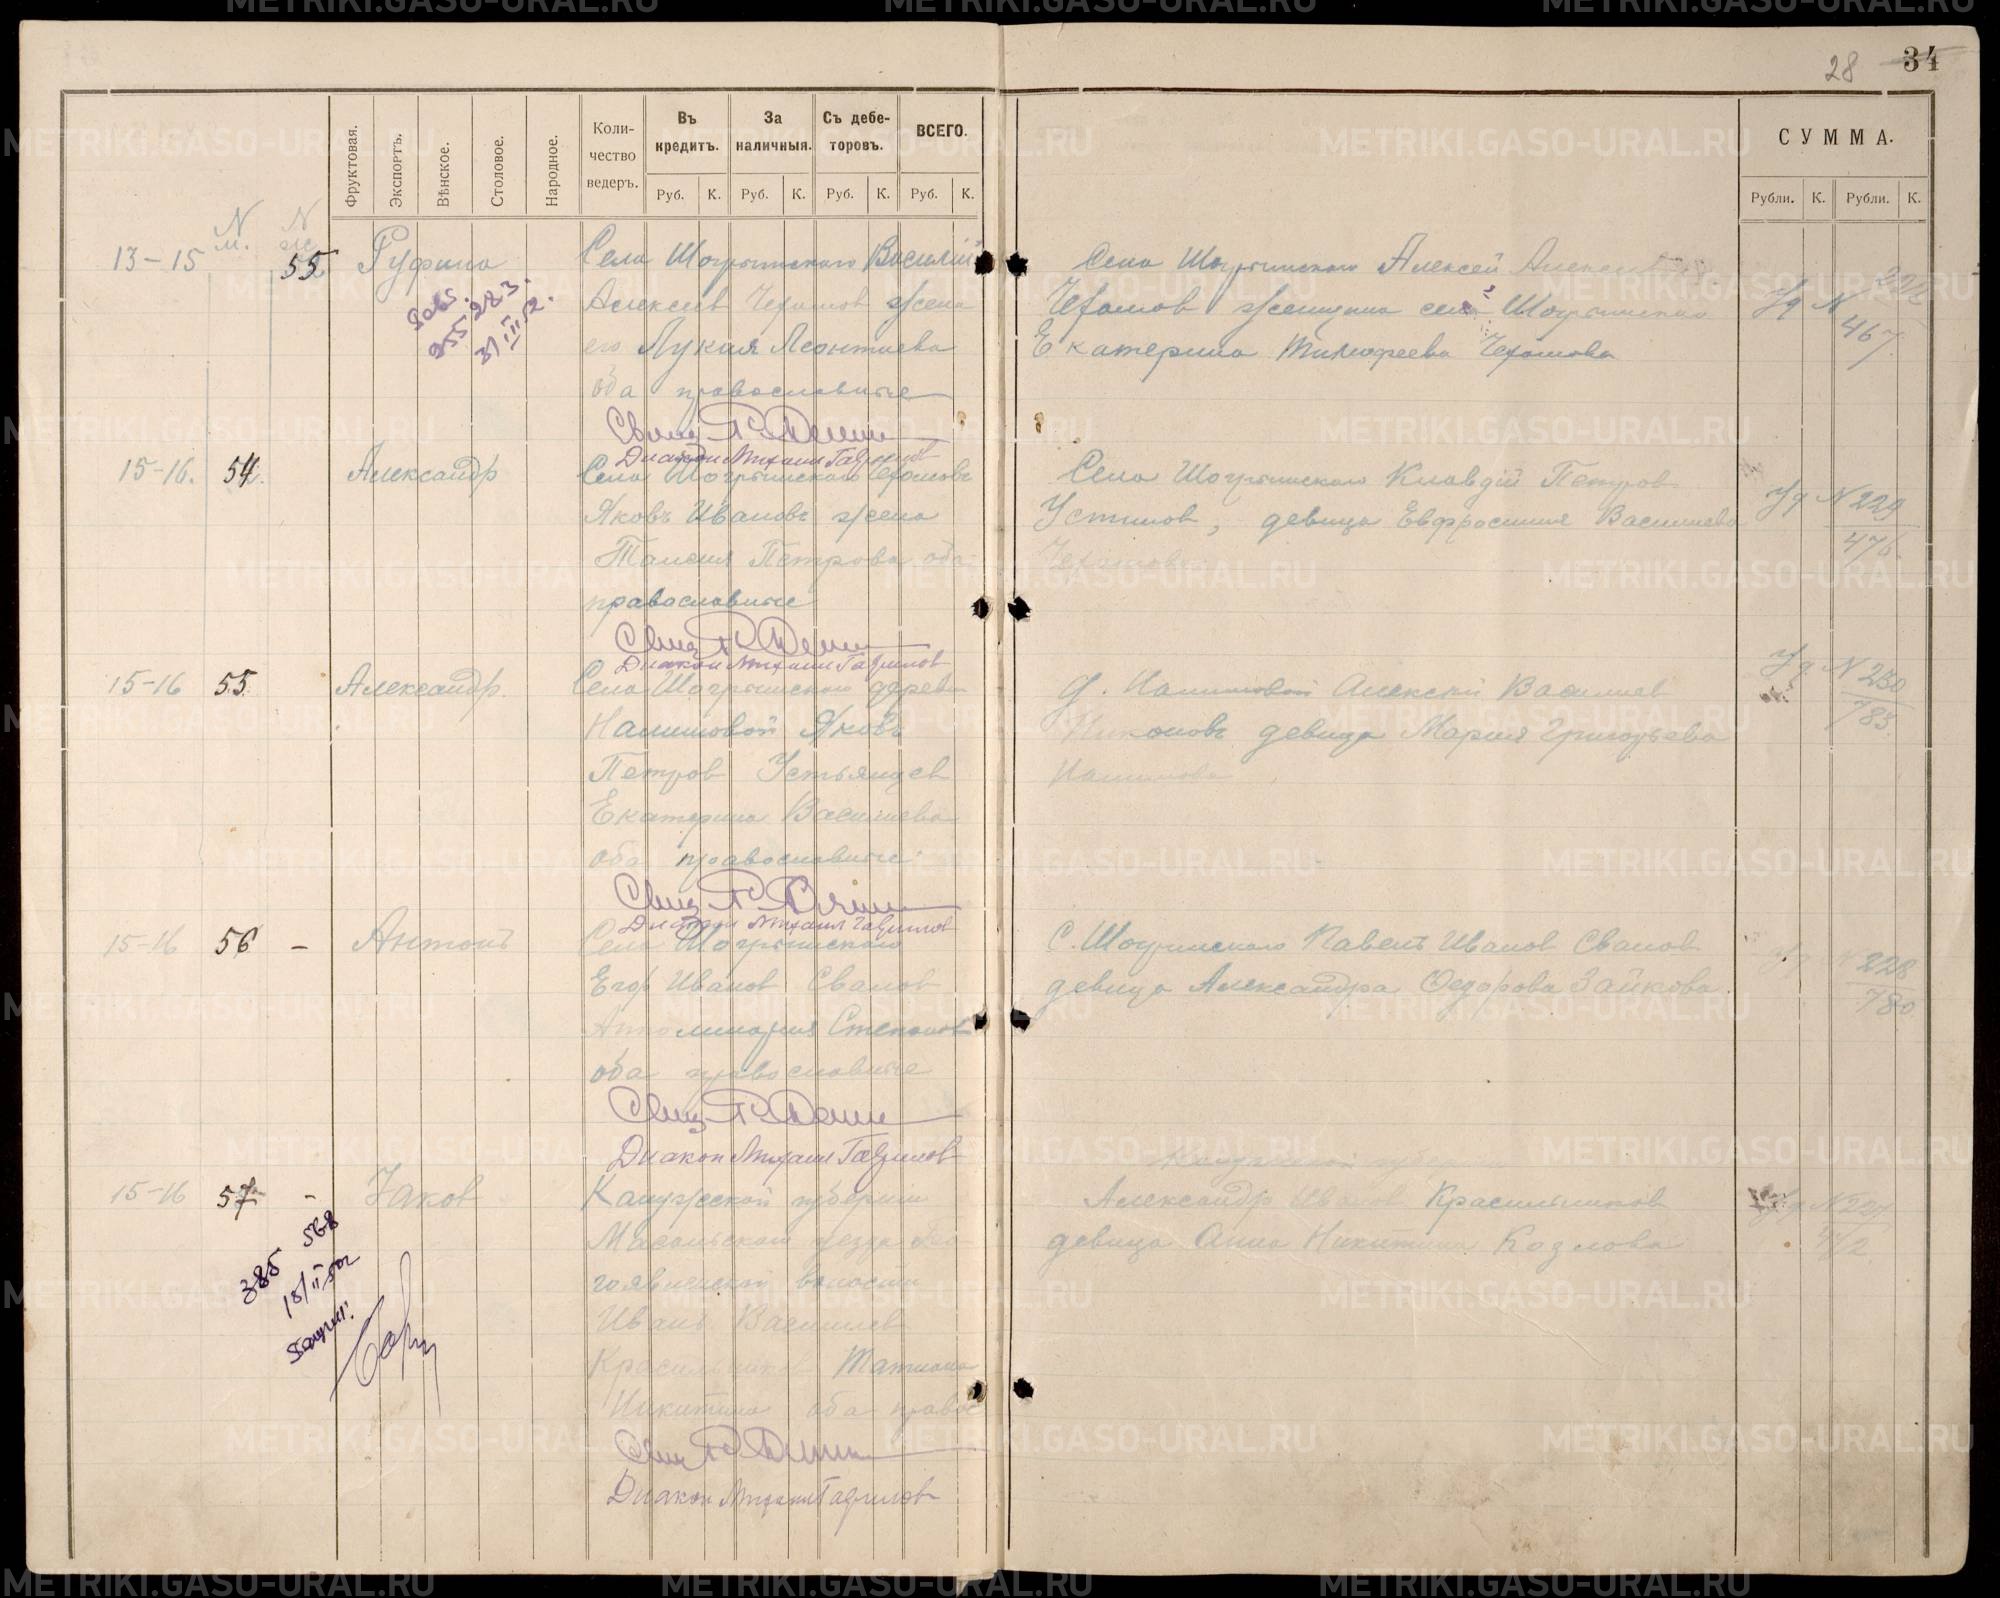 28 34
Фруктовая.
Экспортъ.
Вѣнское.
Столовое.
Народное.
Коли-
чество
ведеръ.
Въ
кредитъ.
За
наличныя.
Съ дебе-
торовъ.
ВСЕГО.
Руб. К. Руб. К. Руб. К. Руб. К.
СУММА.
Рубли. К. Рубли. К.
N м. N ж.
13-15 55 Руфина
Села Шогришского Василій
Алексеев Чехомов жена
его Лукия Леонтиева
оба православные
Свящ. П. Демин
Диакон Михаил Гаврилов
255 283
31/III 52.
Села Шогришского Алексей
Чехомов женщина села Шогришского
Екатерина Тимофеева Чехомова
Уд N
467.
15-16. 54. Александр
Села Шогришского Чехомовъ
Яковъ Ивановъ жена
Таисия Петрова оба
православные
Свящ. П. Демин
Диакон Михаил Гаврилов
Села Шогришского Клавдій Петров
Устинов, девица Евфросиния Василиева
Чехомова
Уд N 229
476.
15-16 55. Александр.
Села Шогришского дерев
Налимовой Яковъ
Петров Устьянцев
Екатерина Василиева
оба православные
Свящ. П. Демин
Диакон Михаил Гаврилов
д. Налимовой Алексей Василиев
Никоновъ девица Мария Григорьева
Налимова
Уд N 230
783.
15-16 56 - Антонъ
Села Шогришского
Егор Иванов Сванов
Апполинария Степанов
оба православные
Свящ. П. Демин
Диакон Михаил Гаврилов
С. Шогришского Павелъ Иванов Сванов
девица Александра Федорова Зайкова.
Уд N 228
780
15-16 57 - Иаков
Калужской губернии
уезда Бо-
гоявленской волости
Иванъ Василиев
Красильников Татиана
Никитина оба правос
Свящ. П. Демин
Диакон Михаил Гаврилов
385 568
18/II 52
Калужской губернии
Александр Иванов Красильников
девица Анна Никитина Козлова
Уд N 227
METRIKI.GASO-URAL.RU